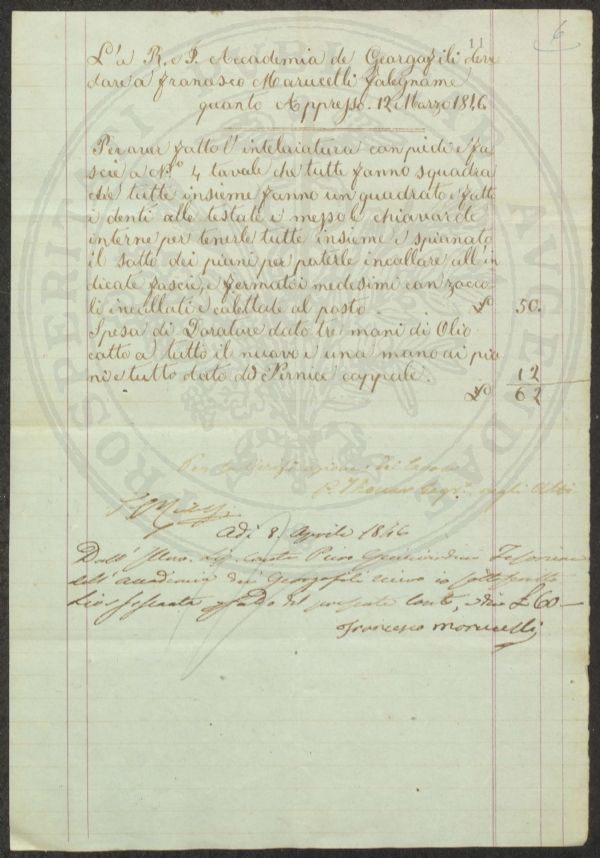 11
6
L'a R. e I. Accademia de Georgofili deve
dare a Francesco Marucelli Falegname
quanto Appresso. 12 Marzo 1846
Per aver fatto l'intelaiatura con piedi e fa
scie a N.o 4 tavole che tutte fanno squadra
che tutte insieme fanno un quadrato e fatto
i denti alle testate e messole chiavarde
interne per tenerle tutte insieme e spianato
il sotto dei piani per poterle incollare all'in
dicate fascie, e fermatoi medesimi con zocco
li incollati e calettate al posto. 50.
Spesa di Doratore dato tre mani di Olio
cotto a tutto il nuovo e una mano ai pia
ni e tutto dato di Vernice coppale. 12
62
Per la
P. Thouar Segr. degli Atti
Adì 8. Aprile 1846
Dall' Illmo. Sig. Conte Piero Guicciardini Tesoriere
dell' Accademia dei Georgofili ricevo io sottoscritto
Lire sessanta saldo del presente conto, dico £ 60 —
Francesco Marucelli
PROSPERITATI PUBLICAE AUGENDAE